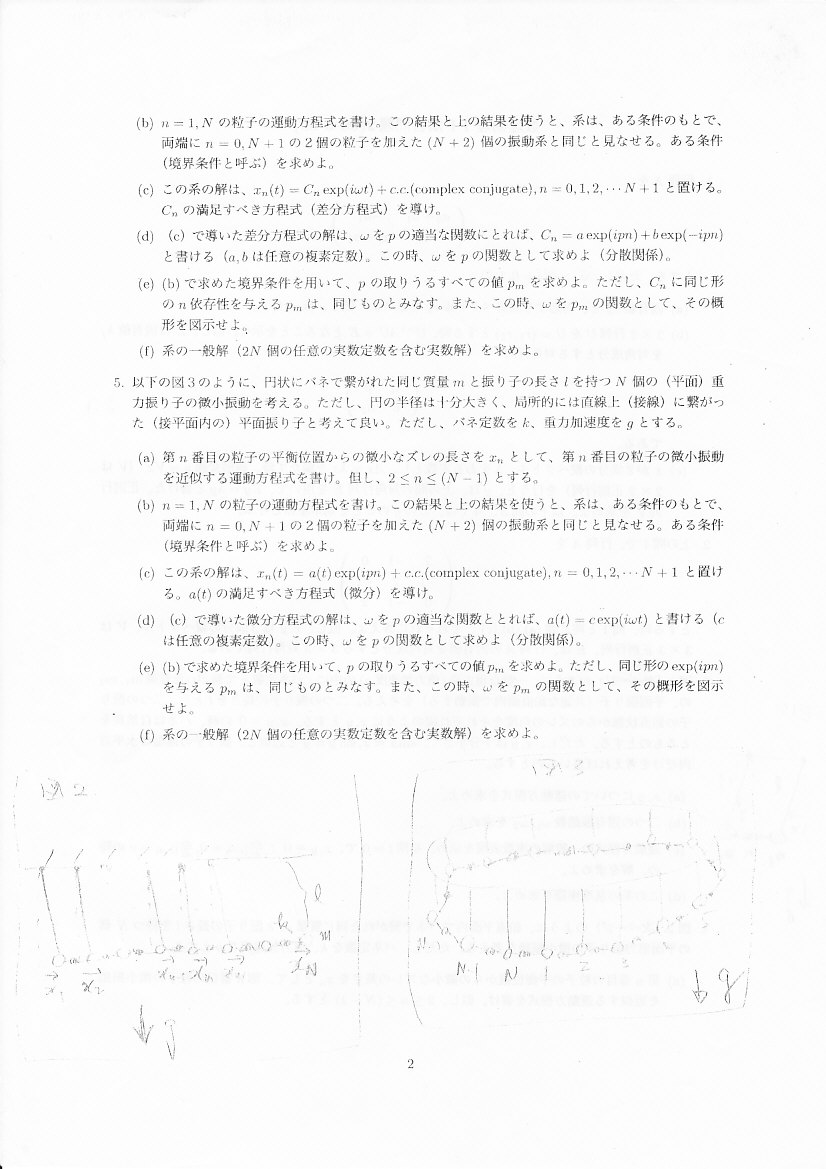 (b) n = 1, N の粒子の運動方程式を書け。この結果と上の結果を使うと、系は、ある条件のもとで、
両端に n = 0, N + 1 の 2 個の粒子を加えた (N + 2) 個の振動系と同じと見なせる。ある条件
(境界条件と呼ぶ) を求めよ。
(c) この系の解は、x_n(t) = C_n exp(iωt) + c.c.(complex conjugate), n = 0, 1, 2, ··· N + 1 と置ける。
C_n の満足すべき方程式（差分方程式）を導け。
(d) （c）で導いた差分方程式の解は、ω を p の適当な関数にとれば、C_n = a exp(ipn) + b exp(−ipn)
と書ける（a, b は任意の複素定数)。この時、ω を p の関数として求めよ（分散関係）。
(e) (b) で求めた境界条件を用いて、p の取りうるすべての値 p_m を求めよ。ただし、C_n に同じ形
の n 依存性を与える p_m は、同じものとみなす。また、この時、ω を p_m の関数として、その概
形を図示せよ。
(f) 系の一般解（2N 個の任意の実数定数を含む実数解）を求めよ。
5. 以下の図３のように、円状にバネで繋がれた同じ質量 m と振り子の長さ l を持つ N 個の（平面）重
力振り子の微小振動を考える。ただし、円の半径は十分大きく、局所的には直線上（接線）に繋がっ
た（接平面内の）平面振り子と考えて良い。ただし、バネ定数を k、重力加速度を g とする。
(a) 第 n 番目の粒子の平衡位置からの微小なズレの長さを x_n として、第 n 番目の粒子の微小振動
を近似する運動方程式を書け。但し、2 ≤ n ≤ (N − 1) とする。
(b) n = 1, N の粒子の運動方程式を書け。この結果と上の結果を使うと、系は、ある条件のもとで、
両端に n = 0, N + 1 の 2 個の粒子を加えた (N + 2) 個の振動系と同じと見なせる。ある条件
(境界条件と呼ぶ）を求めよ。
(c) この系の解は、x_n(t) = a(t) exp(ipn) + c.c.(complex conjugate), n = 0, 1, 2, ··· N + 1 と置け
る。a(t) の満足すべき方程式（微分）を導け。
(d) （c）で導いた微分方程式の解は、ω を p の適当な関数ととれば、a(t) = c exp(iωt) と書ける（c
は任意の複素定数)。この時、ω を p の関数として求めよ（分散関係）。
(e) (b) で求めた境界条件を用いて、p の取りうるすべての値 p_m を求めよ。ただし、同じ形の exp(ipn)
を与える p_m は、同じものとみなす。また、この時、ω を p_m の関数として、その概形を図示
せよ。
(f) 系の一般解（2N 個の任意の実数定数を含む実数解）を求めよ。
図 2
図 3
l
k
m
x_1 x_2 x_n x_N
g
N-1 N 1 2 3
g
2